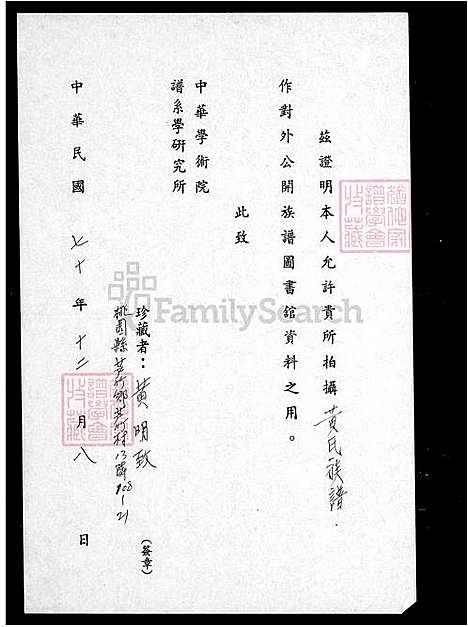 茲證明本人允許貴所拍攝黃氏族譜.
作對外公開族譜圖書館資料之用。
此致
中華學術院
譜系學研究所
珍藏者：黃明致（簽章）
桃園縣蘆竹鄉蘆竹村13鄰
中華民國七十年十二月八日
譜學會
FamilySearch